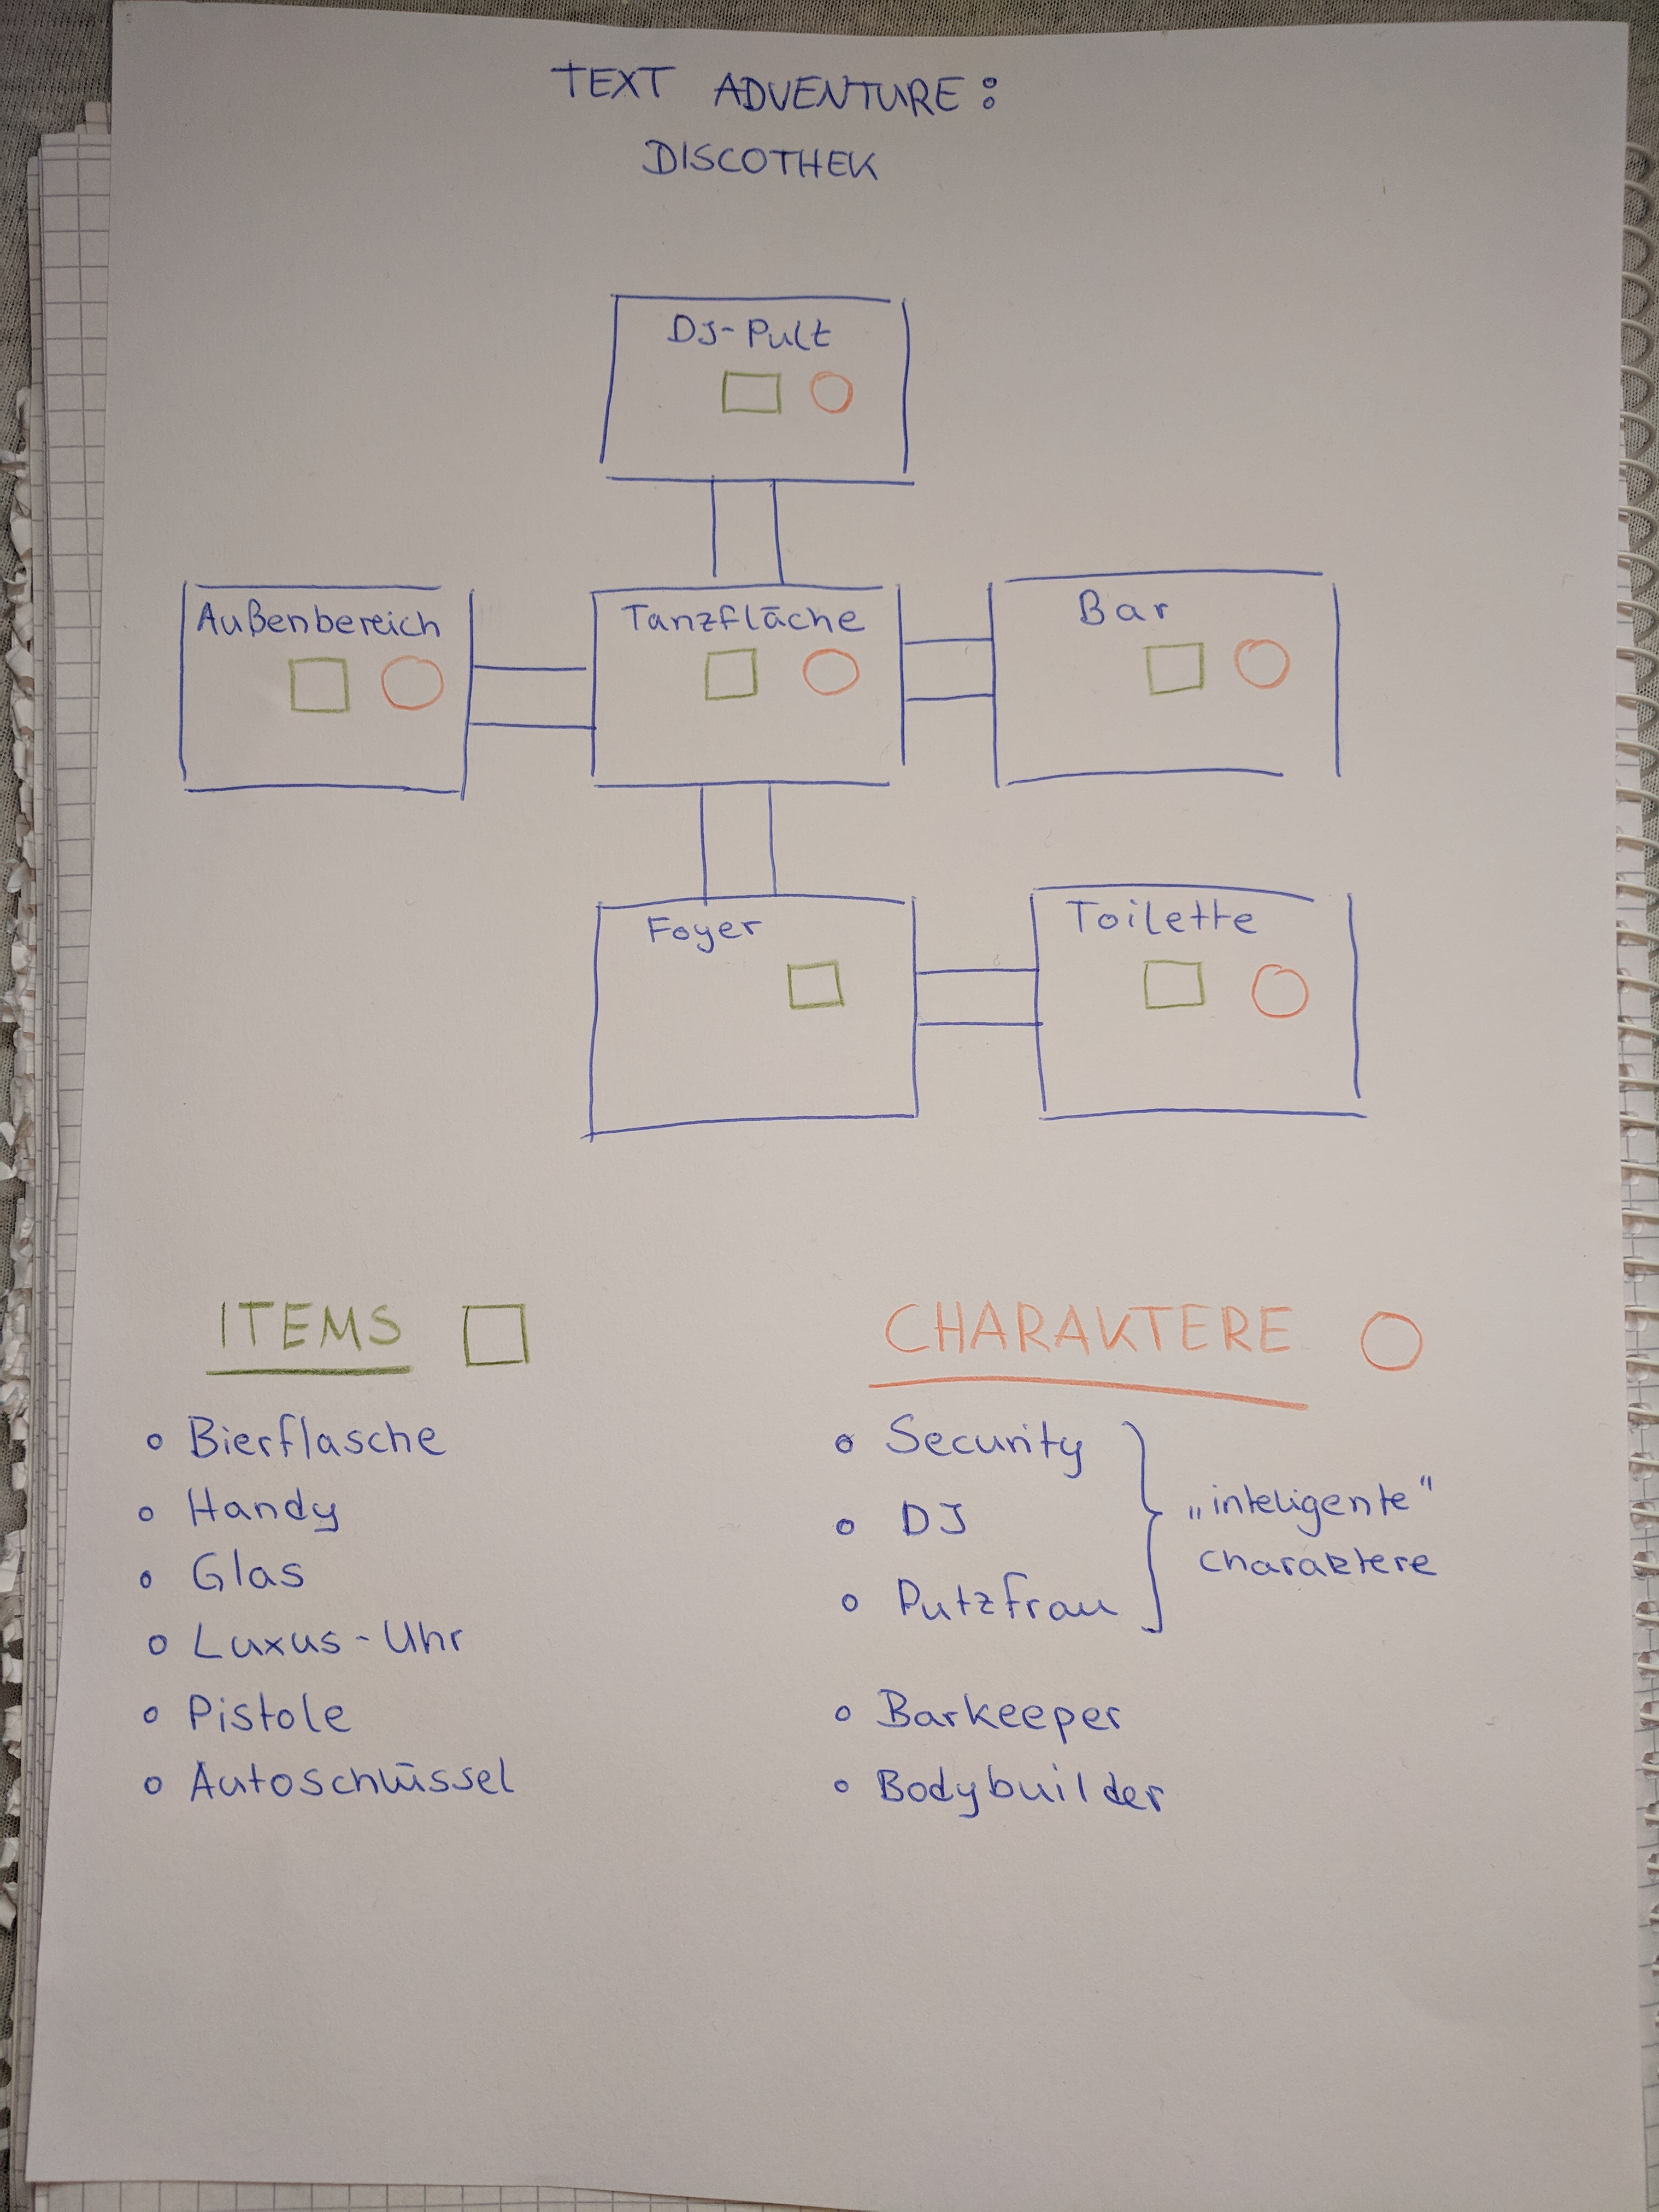 TEXT ADVENTURE:
DISCOTHEK
DJ-Pult
Außenbereich
Tanzfläche
Bar
Foyer
Toilette
ITEMS
Bierflasche
Handy
Glas
Luxus-Uhr
Pistole
Autoschlüssel
CHARAKTERE
Security
DJ
Putzfrau
„inteligente"
charaktere
Barkeeper
Bodybuilder